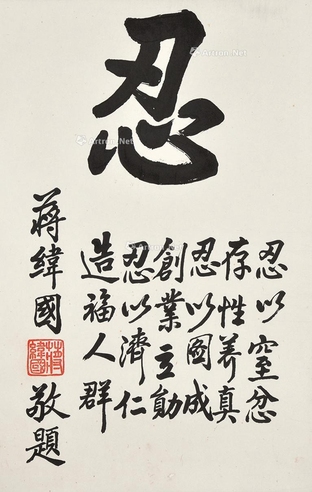 忍
忍以窒忿
存性養真
忍以圖成
創業立勛
忍以濟仁
造福人群
蔣緯國
敬題
蔣緯國